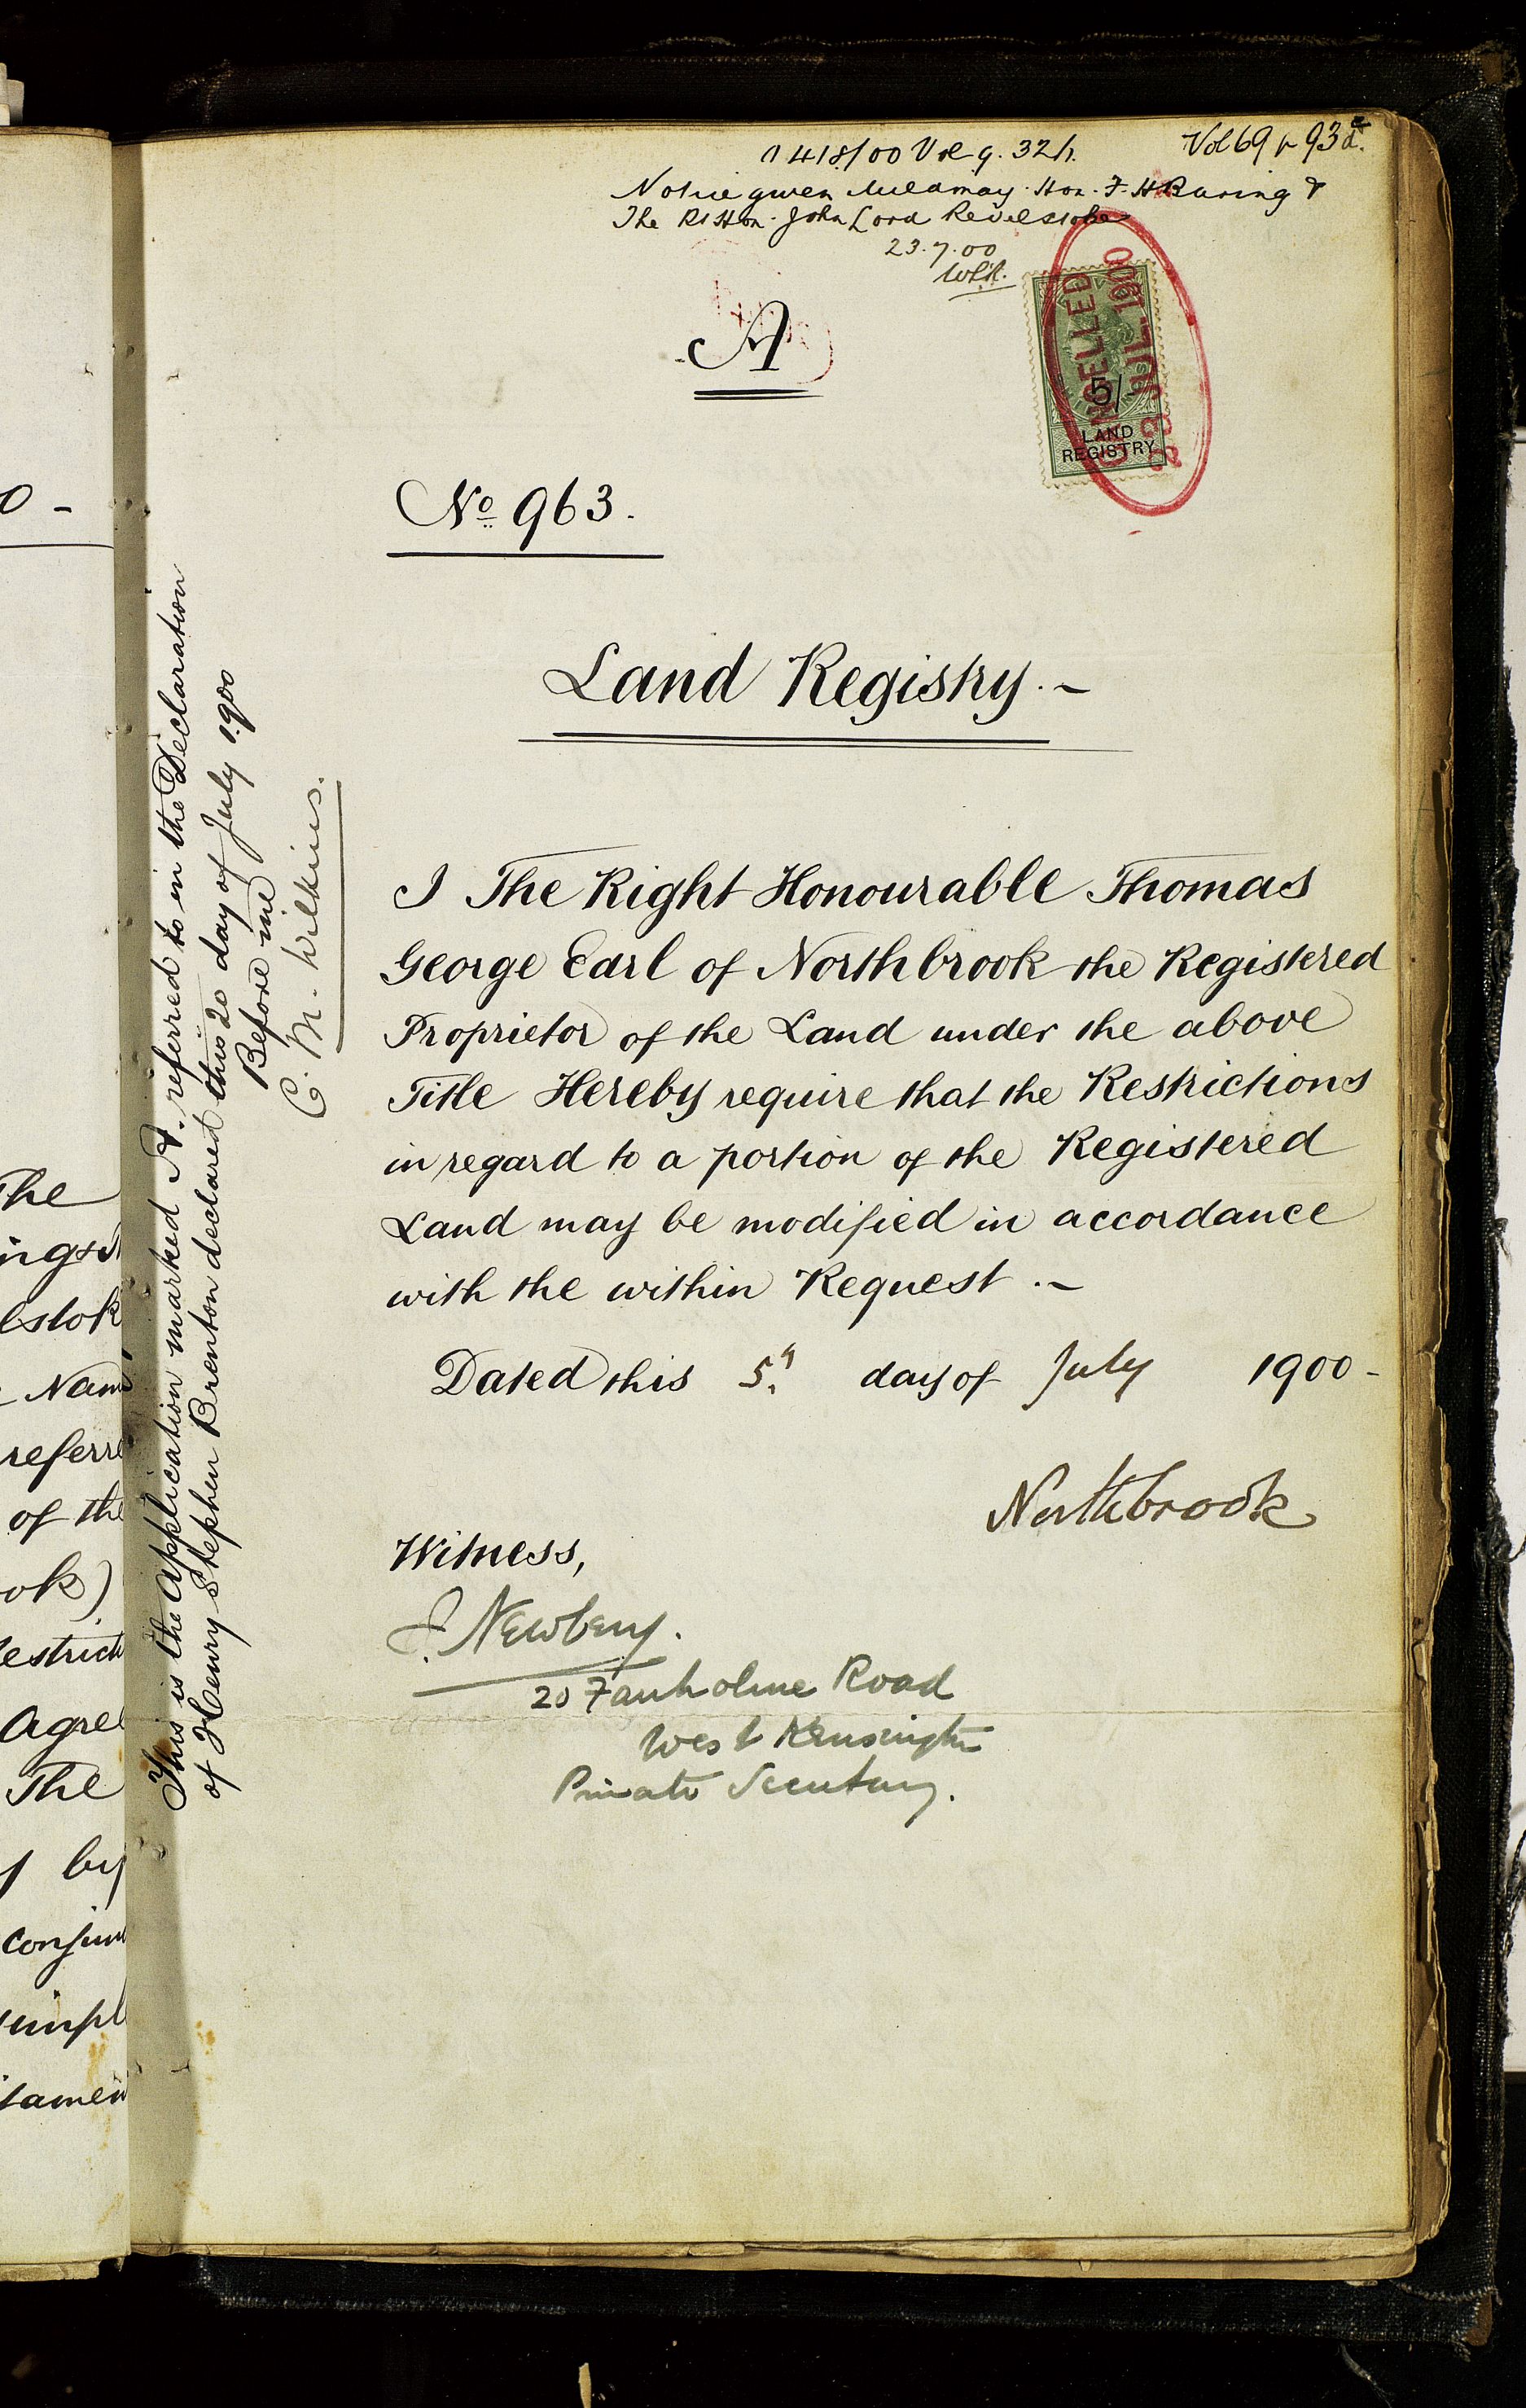 1418/00 Vol 9. 32 h.
Vol 69 p 93 d.
Notice given Mildmay. Hon. F. H Baring &
The Rt Hon. John Lord Revelstoke
23.7.00
A
CANCELLED
23 JUL. 1900
5/-
LAND
REGISTRY
No 963.
Land Registry.-
I The Right Honourable Thomas
George Earl of Northbrook the Registered
Proprietor of the Land under the above
Title Hereby require that the Restrictions
in regard to a portion of the Registered
Land may be modified in accordance
with the within Request.-
Dated this 5th day of July 1900-
Northbrook
Witness,
J. Newbery.
20 Road
West Kensington
Private Secretary.
This is the application marked A. referred to in the Declaration
of Henry Stephen Brenton declared this 20 day of July 1900
Before me
C. M. Wilkins.
0 -
The
ings
lstok
Nam
referre
of the
ok)
estrict
Agree
The
by
conjun
simpl
tamen